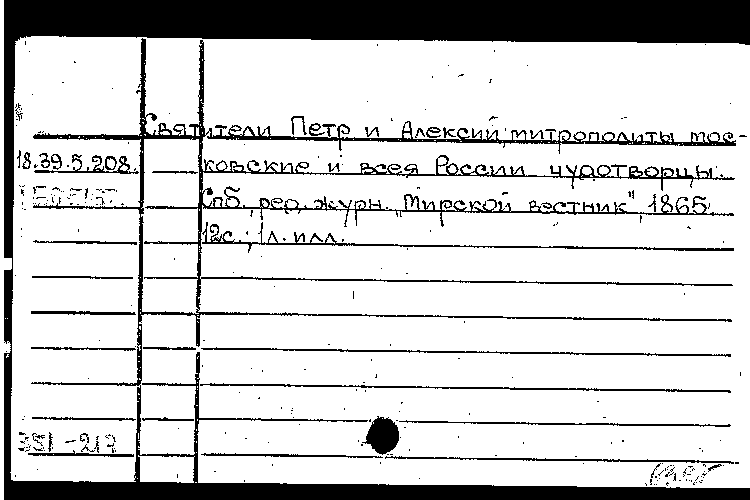 Святители Петр и Алексий, митрополиты мос-
18.39.5.208. ковские и всея России чудотворцы.
Спб., ред. журн. „Мирской вестник", 1865.
12с.; 1л. илл.
351-217